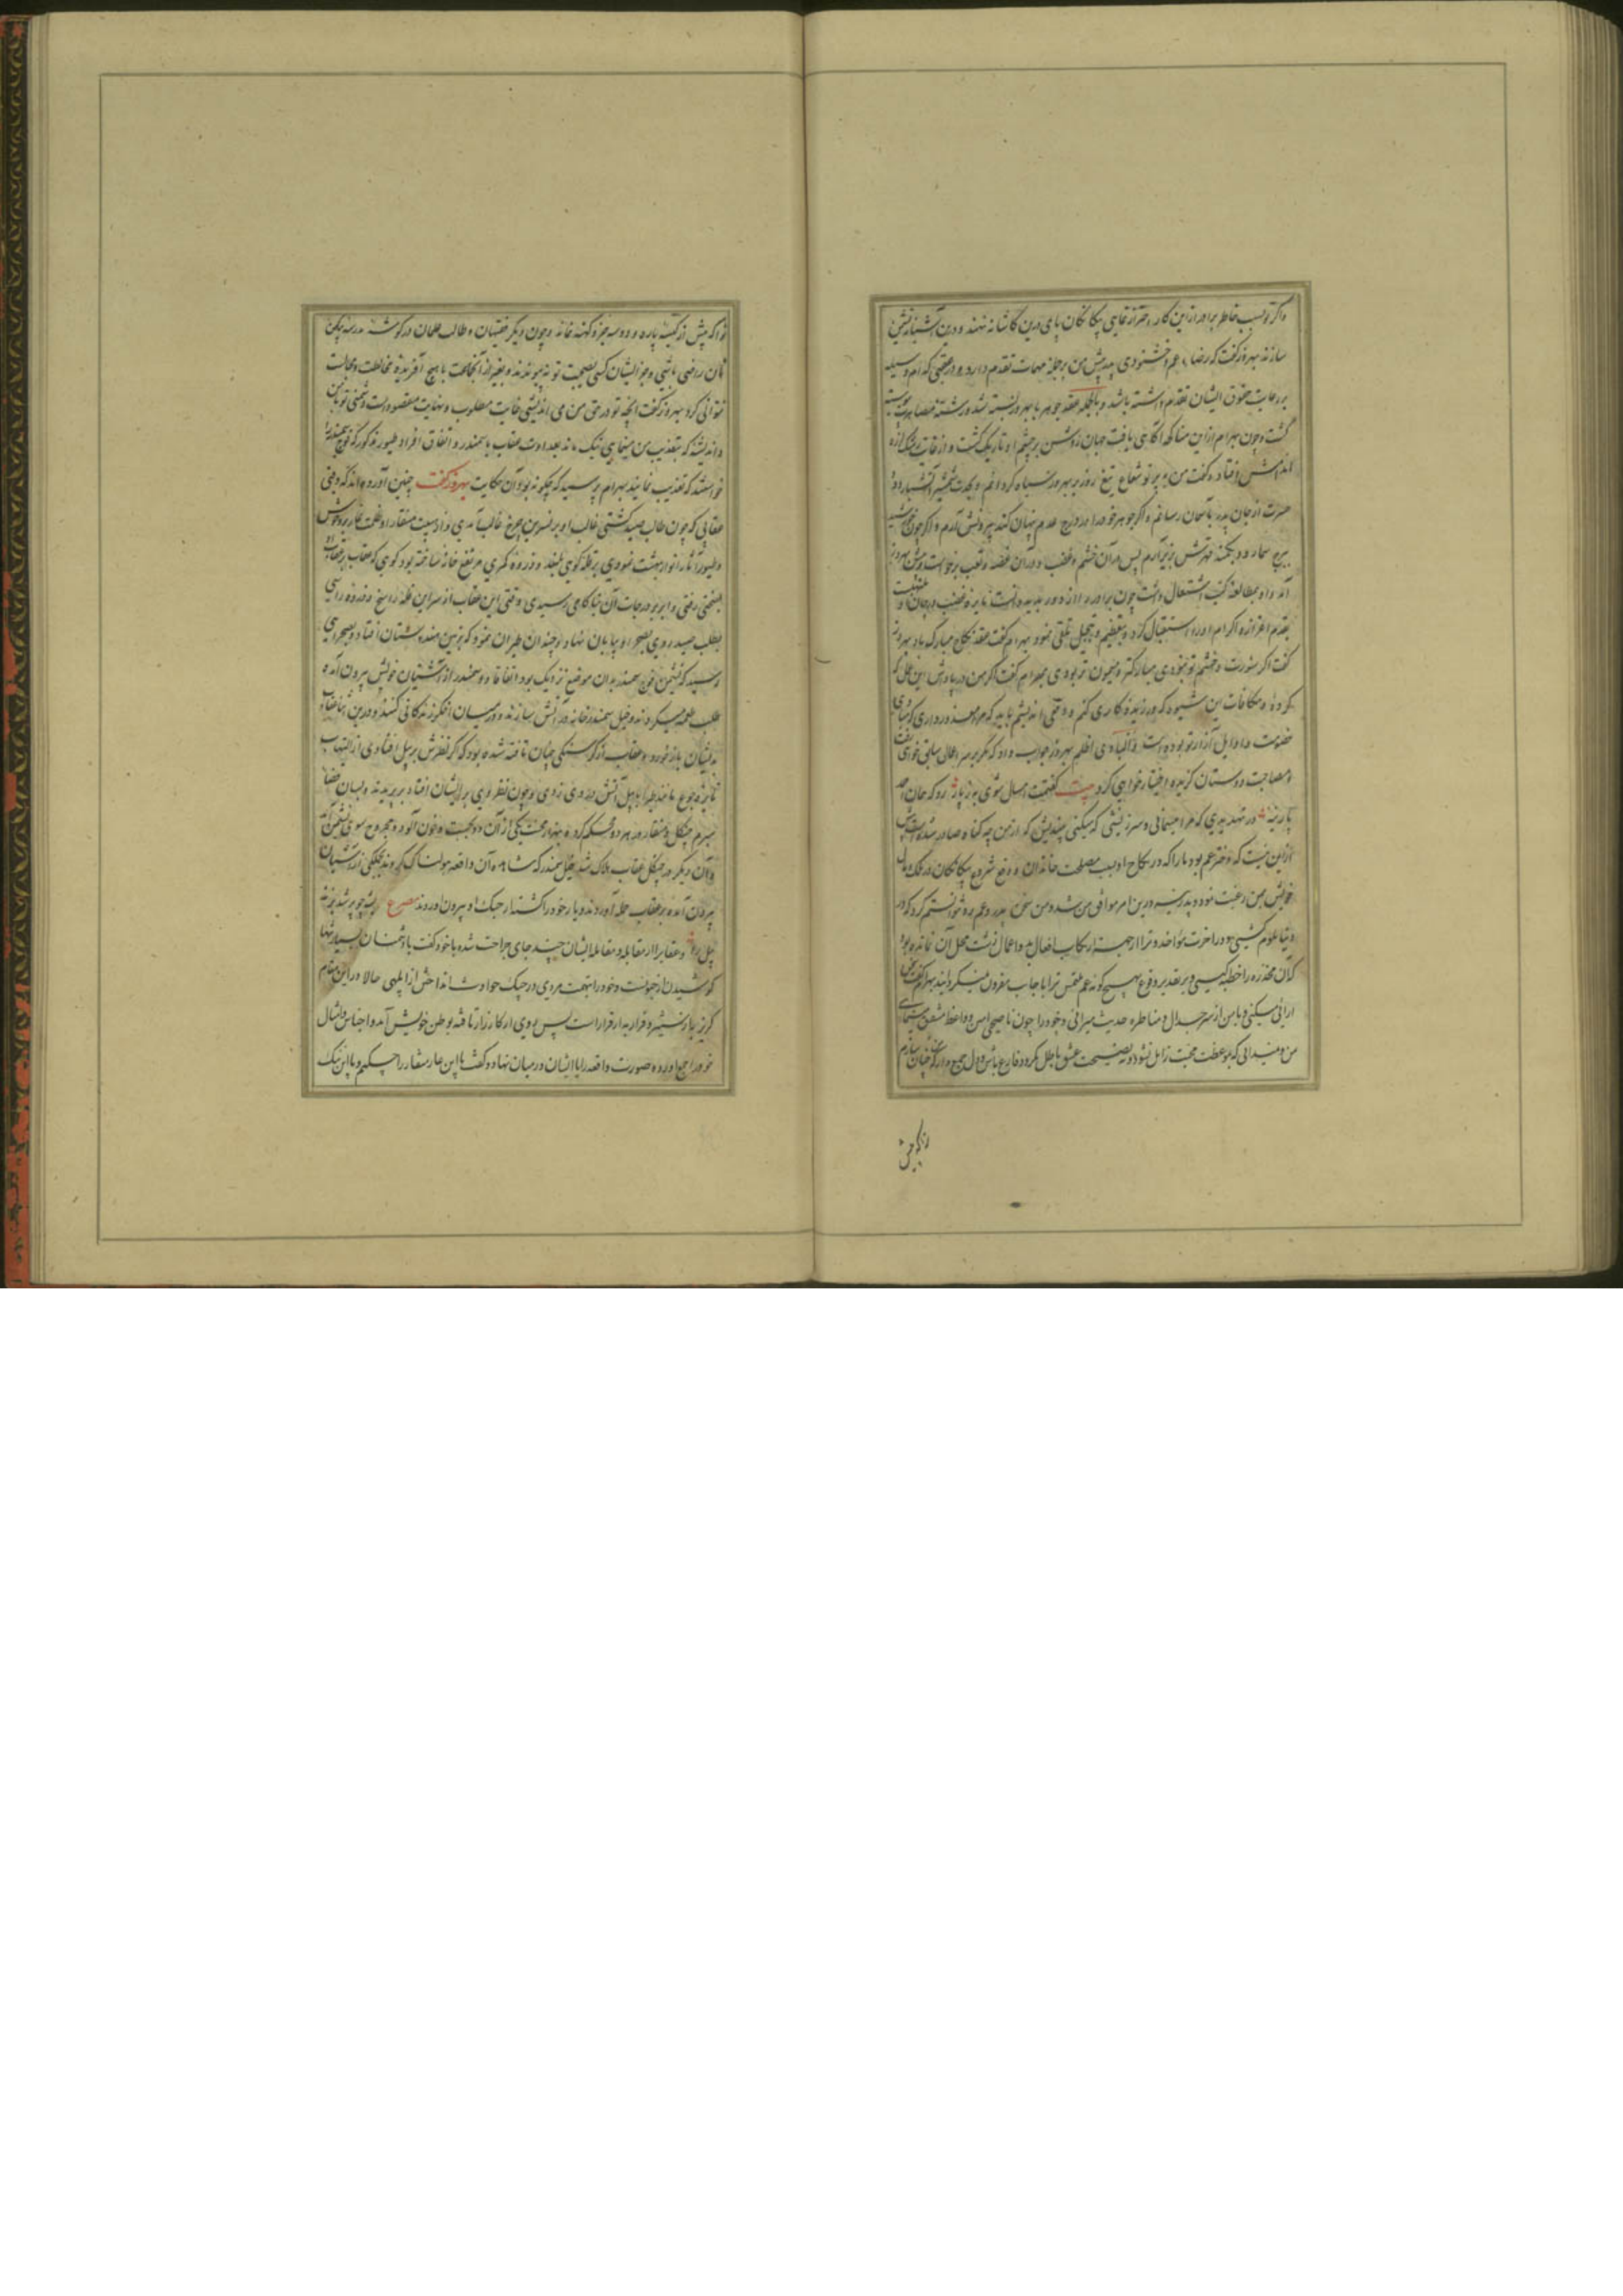 واگر تو بسبب خاطر برادر ازین کار احتراز نمایی بیکانکان پای درین کاشانه نهند و درین آشیانه نشیمن
سازند بهروز گفت که رضاء عم و خشنودی پدر پیش من بر جمله مهمات تقدم دارد و
بر رعایت حقوق ایشان تقدم داشته باشد و بالجمله عقد جوهر با بهروز بسته شد و رشته مصاهرت پیوسته
گشت و چون بهرام ازین مناکحه آگاهی یافت جهان روشن بر چشم او تاریک گشت و از
افتاد و گفت من بر تو شعاع تیغ روز بر بهروز سیاه کردانم و بحدت شمشیر آتشبار دود
حسرت از جان پدر بآسمان رسانم و اگر جوهر خود را در درج عدم پنهان کند بیرونش آرم و اگر چون خورشید
ببرج سما رود بکمند قهرش بزیر آرم پس در آن خشم و غضب و در آن غصه و تعب برخواست و پیش بهروز
آمد و او بمطالعه کتب اشتغال داشت چون برادر را از دور بدید دانست
بقدم اعزاز و اکرام او را استقبال کرد و بتعظیم و تبجیل تلقی نمود بهرام گفت عقد نکاح مبارک باد بهروز
گفت اگر بشورت و خشم تو نبودی مبارکتر و میمون تر بودی بهرام گفت اگر من در پاداش این عمل که
کردهٔ و مکافات این شیوه که ورزیدهٔ کاری کنم و وقتی اندیشم باید که مرا معذور داری که مبادی
خصومت و اوایل آزار تو بوده است و البادی اظلم بهروز جواب داد که مگر بر سر اعمال سابق خواهی رفت
و مصاحبت دوستان گزیده اختیار خواهی کرد بیت گفتمت امسال شوی به ز پار رو که همان احمد
پارینه در تهدیدی که مرا مینمایی و سرزنشی که میکنی بیندیش که از من چه گناه صادر شده است بیش
ازین نیست که دختر عم بود ما را که در نکاح او بسبب مصلحت خاندان و دفع شروع بیکانکان در ملک و مال
خویش بمن رغبت نمود و پدر نیز درین امر موافق من شد و من سخن پدر و عم رد نتوانستم کرد که در
دنیا ملوم کشتمی و در آخرت مؤاخذ و ترا از جهت ارتکاب افعال بد و اعمال زشت محل آن نمانده بود
که آن مخدره را خطبه کنی و بر تقدیر وقوع بهیچ گونه عم ملتمس ترا باجابت مقرون نمیکردانید بهرام گفت سخن
آرائی میکنی و با من از سر جدال و مناظره حدیث میرانی و خود را چون ناصحی امین و واعظ مشفق مینمائی
من و نمیدانی که بموعظت محبت زایل نشود و بنصیحت عشق باطل نکردد فارغ باش و دل جمع دار که چنان سازم
ترا که پیش
ترا که پیش از کتبه پاره و دو سه جزو کهنه نماند و چون دیگر فقیهان و طالب علمان در گوشه مدرسه بیک
نان راضی باشی و جز ایشان کسی بصحبت تو نپیوندد و بغیر از آنجماعت با هیچ آفریده مخالطت و مجالست
نتوانی کرد بهروز گفت آنچه تو در حق من می اندیشی غایت مطلوب و نهایت مقصود است و دشمنی تو با من
و اندیشه که بتعذیب من مینمایی نیک ماند بعداوت عقاب با سمندر و اتفاق افراد طیور مذکور که فوج سمندر را
خواستند که تعذیب نمایند بهرام پرسید که چگونه بود آن حکایت بهروز گفت چنین آورده اند که وقتی
عقابی که چون طالب صید گشتی غالب او بر نسرین چرخ غالب آمدی و از هیبت منقار او
و طیور آثار انوار بهشت نمودی بر قله کوهی بلند و ذروه کمری مرتفع خانه ساخته بود کوهی که عقاب بر عقاب او
بسختی رفتی و ابر بر درجات آن بناکامی رسیدی وقتی این عقاب از سر این قله راسخ و ذروه راسی
بطلب صید روی بصحرا و بیابان نهاد و چندان طیران نمود که بزمین هندوستان افتاد و بصحرایی
رسید که نشیمن فوج سمندر بدان موضع نزدیک بود اتفاقا دو سمندر از آشیان خویش بیرون آمده
طلب طعمه میکردند و خیل سمندر خانه در آتش سازند و در میان اخگر زندگانی کنند و درین اثنا عقاب
بدیشان باز خورد و عقاب از گرسنگی چنان تافته شده بود که اگر نظرش بر پیل افتادی از التهاب
نایره جوع مانند طیر ابابیل آتش در وی زدی و چون نظر وی بر ایشان افتاد بر پرید و بسان قضا
مبرم چنگل و منقار در هر دو محکم کرد و بهزار محنت یکی از آن دو بجست و خون آلوده و مجروح سوی نشیمن آمد
و آن دیگر در چنگل عقاب هلاک شد خیل سمندر که مشاهده آن واقعه هولناک کردند بجملگی از آشیان
بیرون آمده بر عقاب حمله آوردند و یار خود را کشته از چنگ او بیرون آوردند مصرع پشه چو پر شد بزند
پیل را و عقاب را از مقابله و مقاتله ایشان چند جای جراحت شده با خود گفت با دشمنان بسیار تنها
کوشیدن از جنونست و خود را بتهمت مردی در چنگ حوادث انداختن از ابلهی حالا در این مقام
گریز به از ستیز و فرار به از قرار است پس روی از کارزار تافته بوطن خویش آمد و اجناس و امثال
خود را جمع آورده صورت واقعه را با ایشان در میان نهاد و گفت با این عار و شنار را چه کنیم و با این ننگ